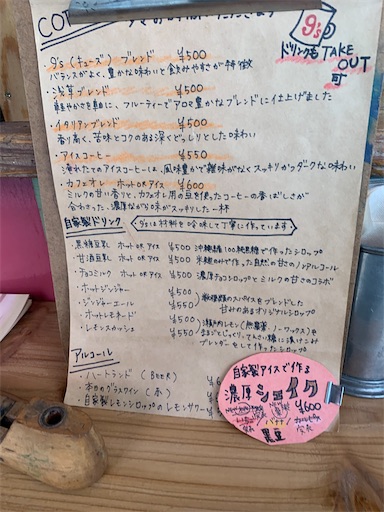 9's
ドリンクも TAKE OUT 可
・9's（チューズ）ブレンド ¥500
バランスがよく、豊かな味わいと飲みやすさが特徴
・浅草ブレンド ¥500
軽やかさを軸に、フルーティーでアロマ豊かなブレンドに仕上げました
・イタリアンブレンド ¥500
香り高く、苦味とコクのある深くどっしりとした味わい
・アイスコーヒー ¥550
淹れたてのアイスコーヒーは、風味豊かで雑味がなくスッキリかつダークな味わい
・カフェオレ ホット OR アイス ¥600
ミルクの甘い香りと、カフェオレ用の豆を使ったコーヒーの香ばしさが
合わさった、濃厚ながら味がスッキリした一杯
自家製ドリンク 9'sは材料を吟味して丁寧に作っています
・黒糖豆乳 ホット OR アイス ¥500 沖縄県100%黒糖で作ったシロップ
・甘酒豆乳 ホット OR アイス ¥500 米麹のみで作った自然の甘さのノンアルコール
・チョコミルク ホット OR アイス ¥500 濃厚チョコシロップとミルクの甘さのコラボ
・ホットジンジャー ¥500
・ジンジャーエール ¥550
数種類のスパイスをブレンドした
甘みのあるオリジナルシロップ
・ホットレモネード ¥500
・レモンスカッシュ ¥550
瀬戸内レモン（無農薬、ノーワックス）を
まるごとじっくり、てんさい糖に漬けこみ
ブレンダーをして作ったシロップ
アルコール
・ハートランド（BEER）
・本日のグラスワイン（赤）
・自家製レモンシロップのレモンサワー
自家製アイスで作る
濃厚シェイク
¥600
バナナ
黒豆